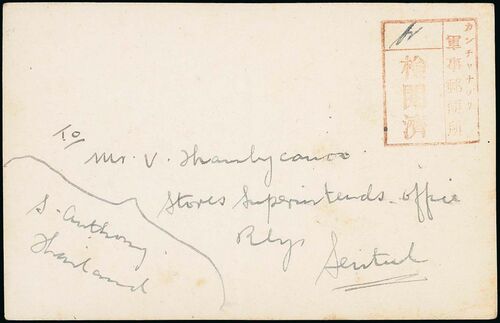 カンチャナブリ
軍事郵便所
検閲済
To/
Mr. V. Thambycanoo
Stores Superintends. office
Rlys
Sentul
S. Anthony
Thailand